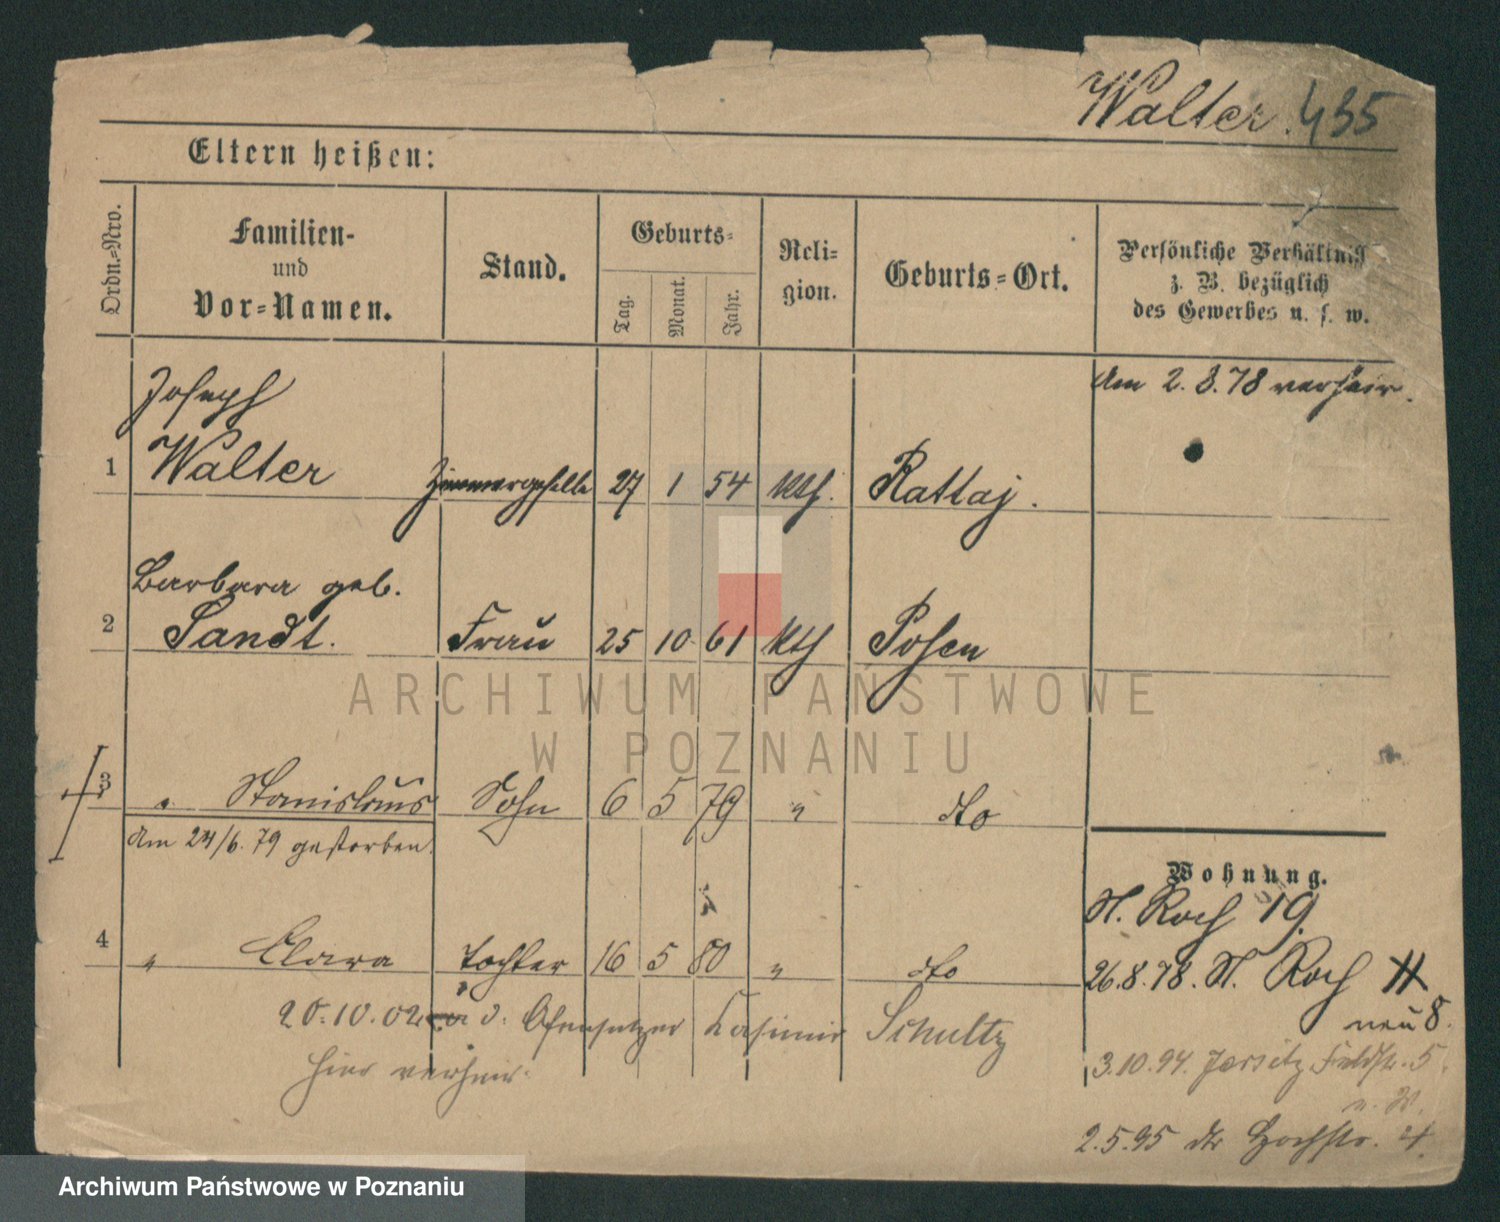 Walter. 435
Eltern heißen:
Ordn.=Nro.
Familien- und Vor=Namen.
Stand.
Geburts=
Tag.
Monat.
Jahr.
Reli=
gion.
Geburts=Ort.
Persönliche Verhältniss
z. B. bezüglich
des Gewerbes u. s. w.
Joseph
Am 2.8.78 verheir.
1 Walter Zimmergeselle 27 1 54 kth. Rattaj.
Barbara geb.
2 Sandt. Frau 25 10 61 kth Posen
ARCHIWUM PAŃSTWOWE
W POZNANIU
3 " Stanislaus Sohn 6 5 79 " dto
Am 24/6.79 gestorben.
Wohnung.
St. Roch 19.
4 " Clara Tochter 16 5 80 " dto
26.8.78. St. Roch 11
neu 8.
20.10.02 d. Ofensetzer Kasimir Schultz
hier verheir.
3.10.94. Jersitz Feldstr. 5.
u. W.
2.5.95 dto Hochstr. 4.
Archiwum Państwowe w Poznaniu